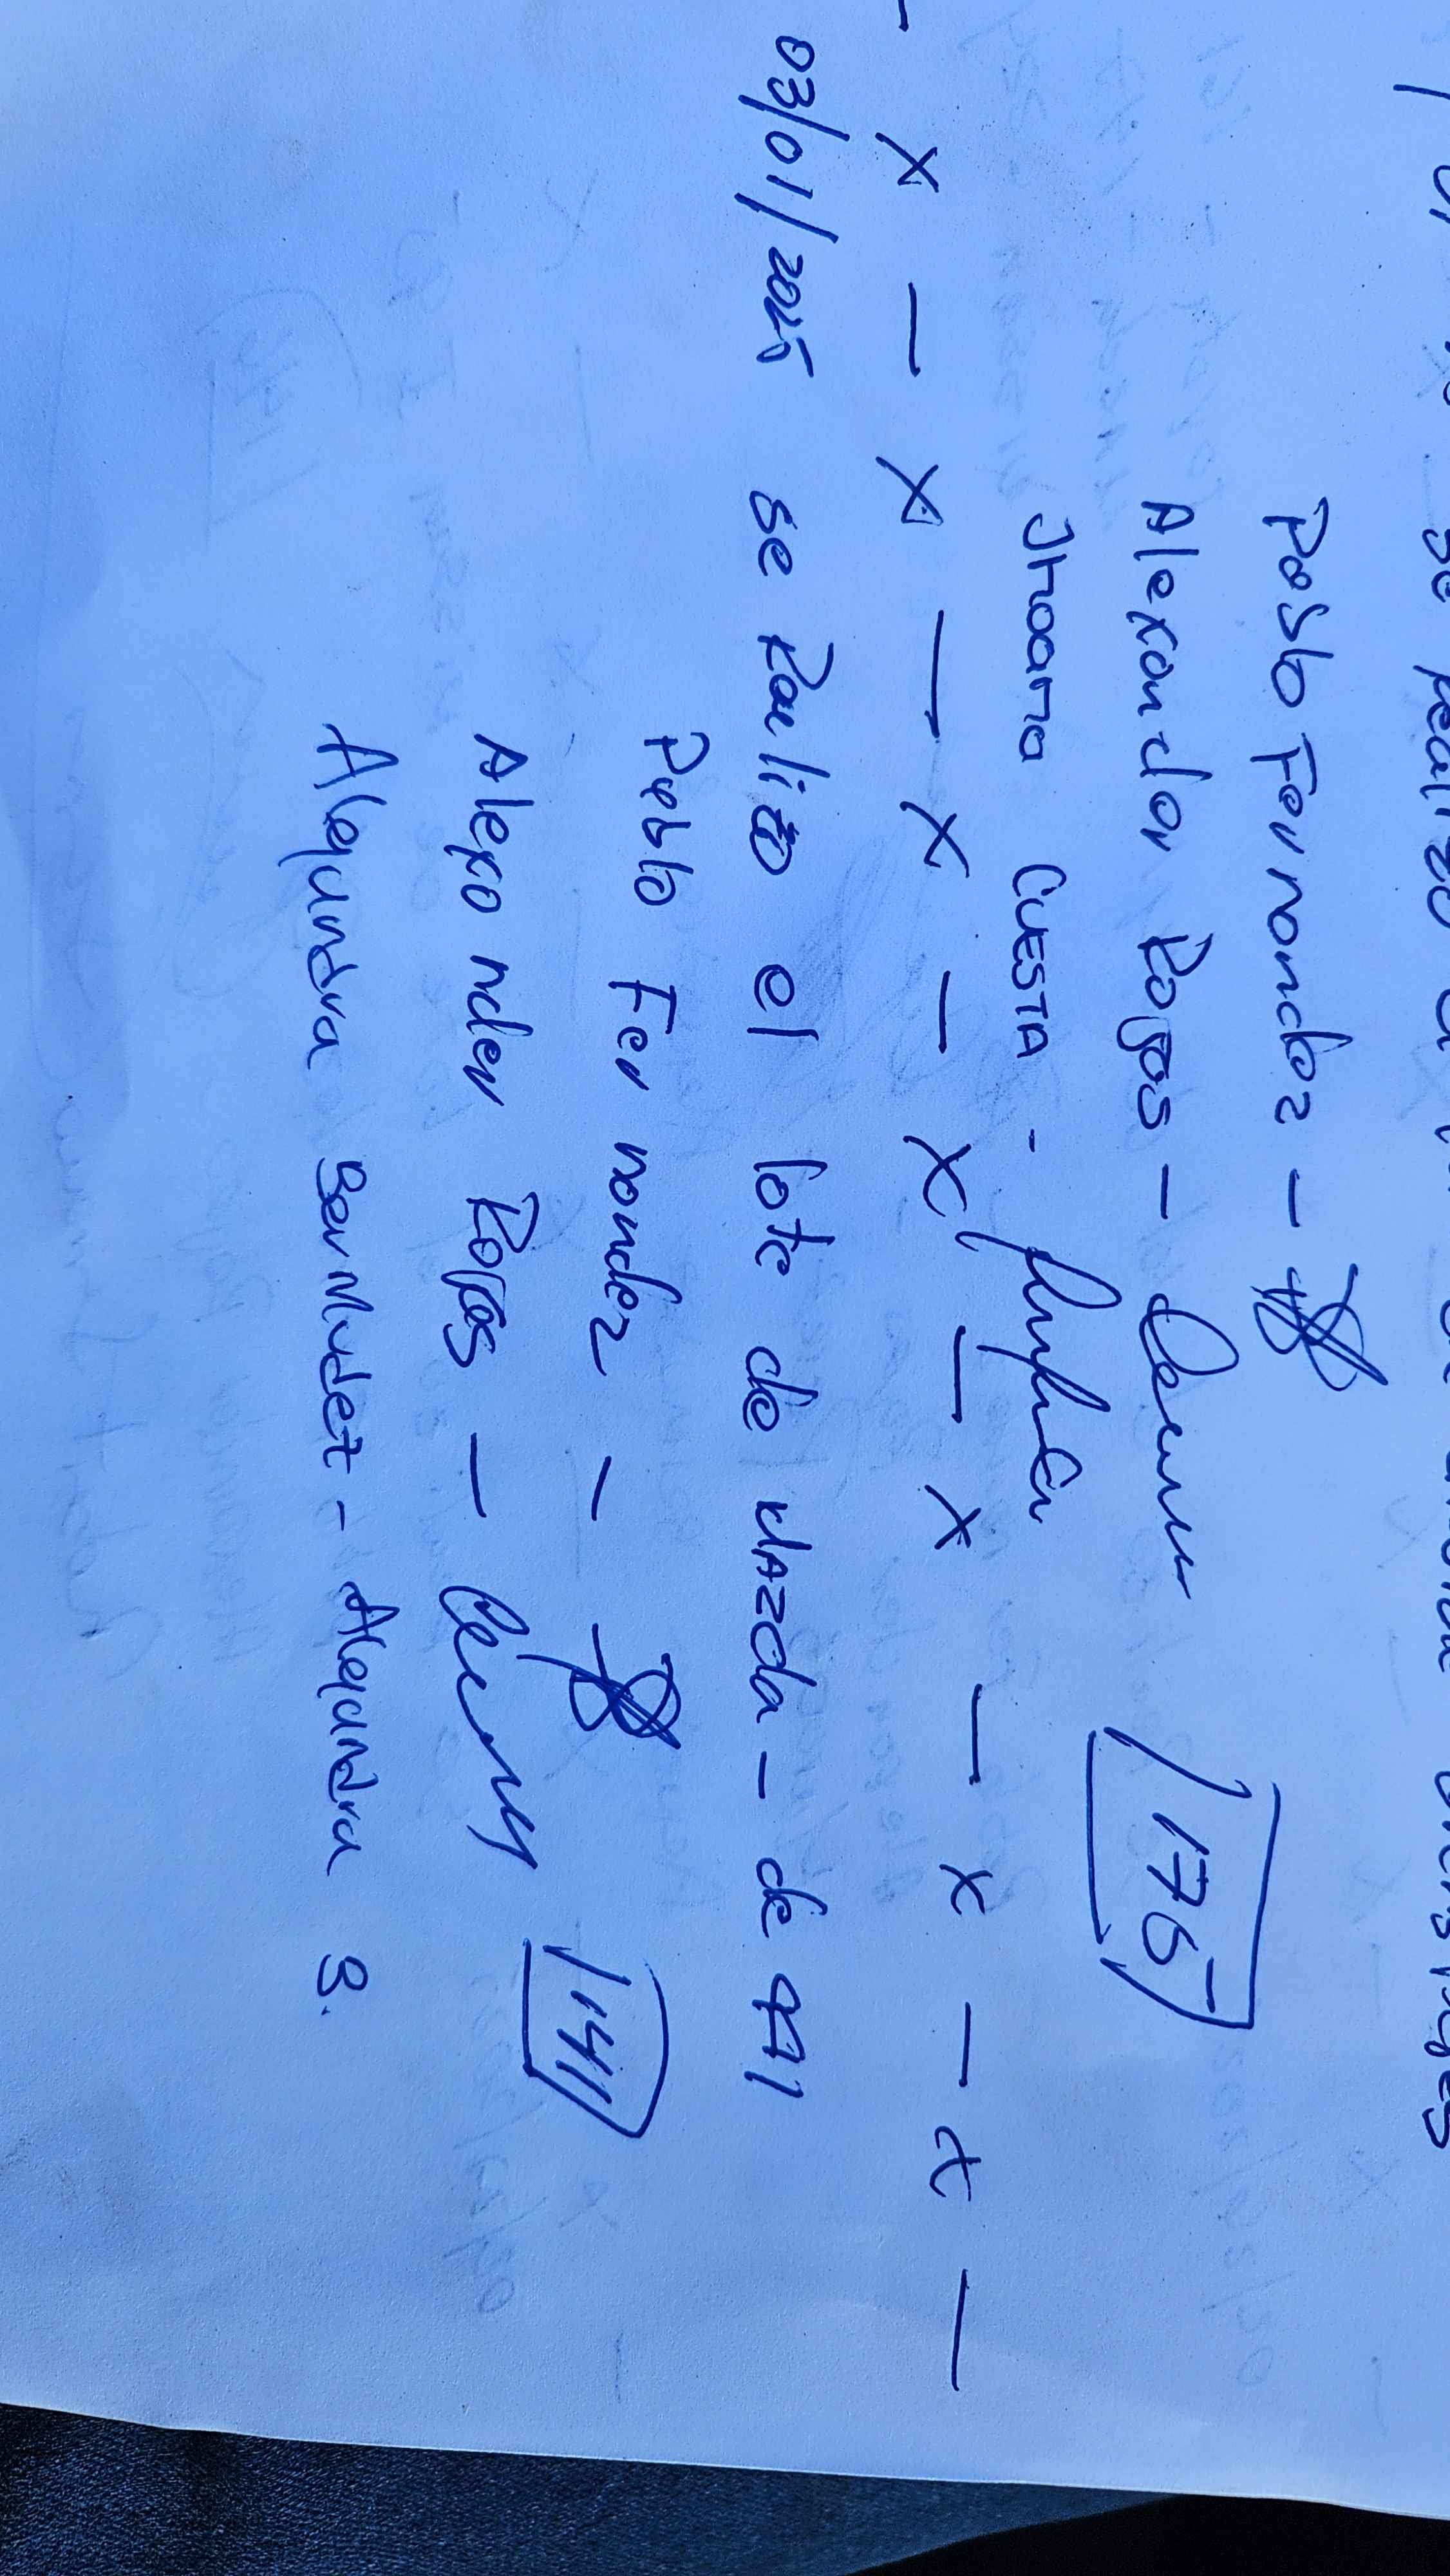 se realizo
Pablo Fernandez -
Alexander Rojas -
175
Jhoana CUESTA -
x - x - x - x - x - x - x -
03/01/2025 se Realizo el lote de MAZda - de 441
Pablo Fernandez -
141
Alexander Rojas -
Alejandra BerMudez - Alejandra B.